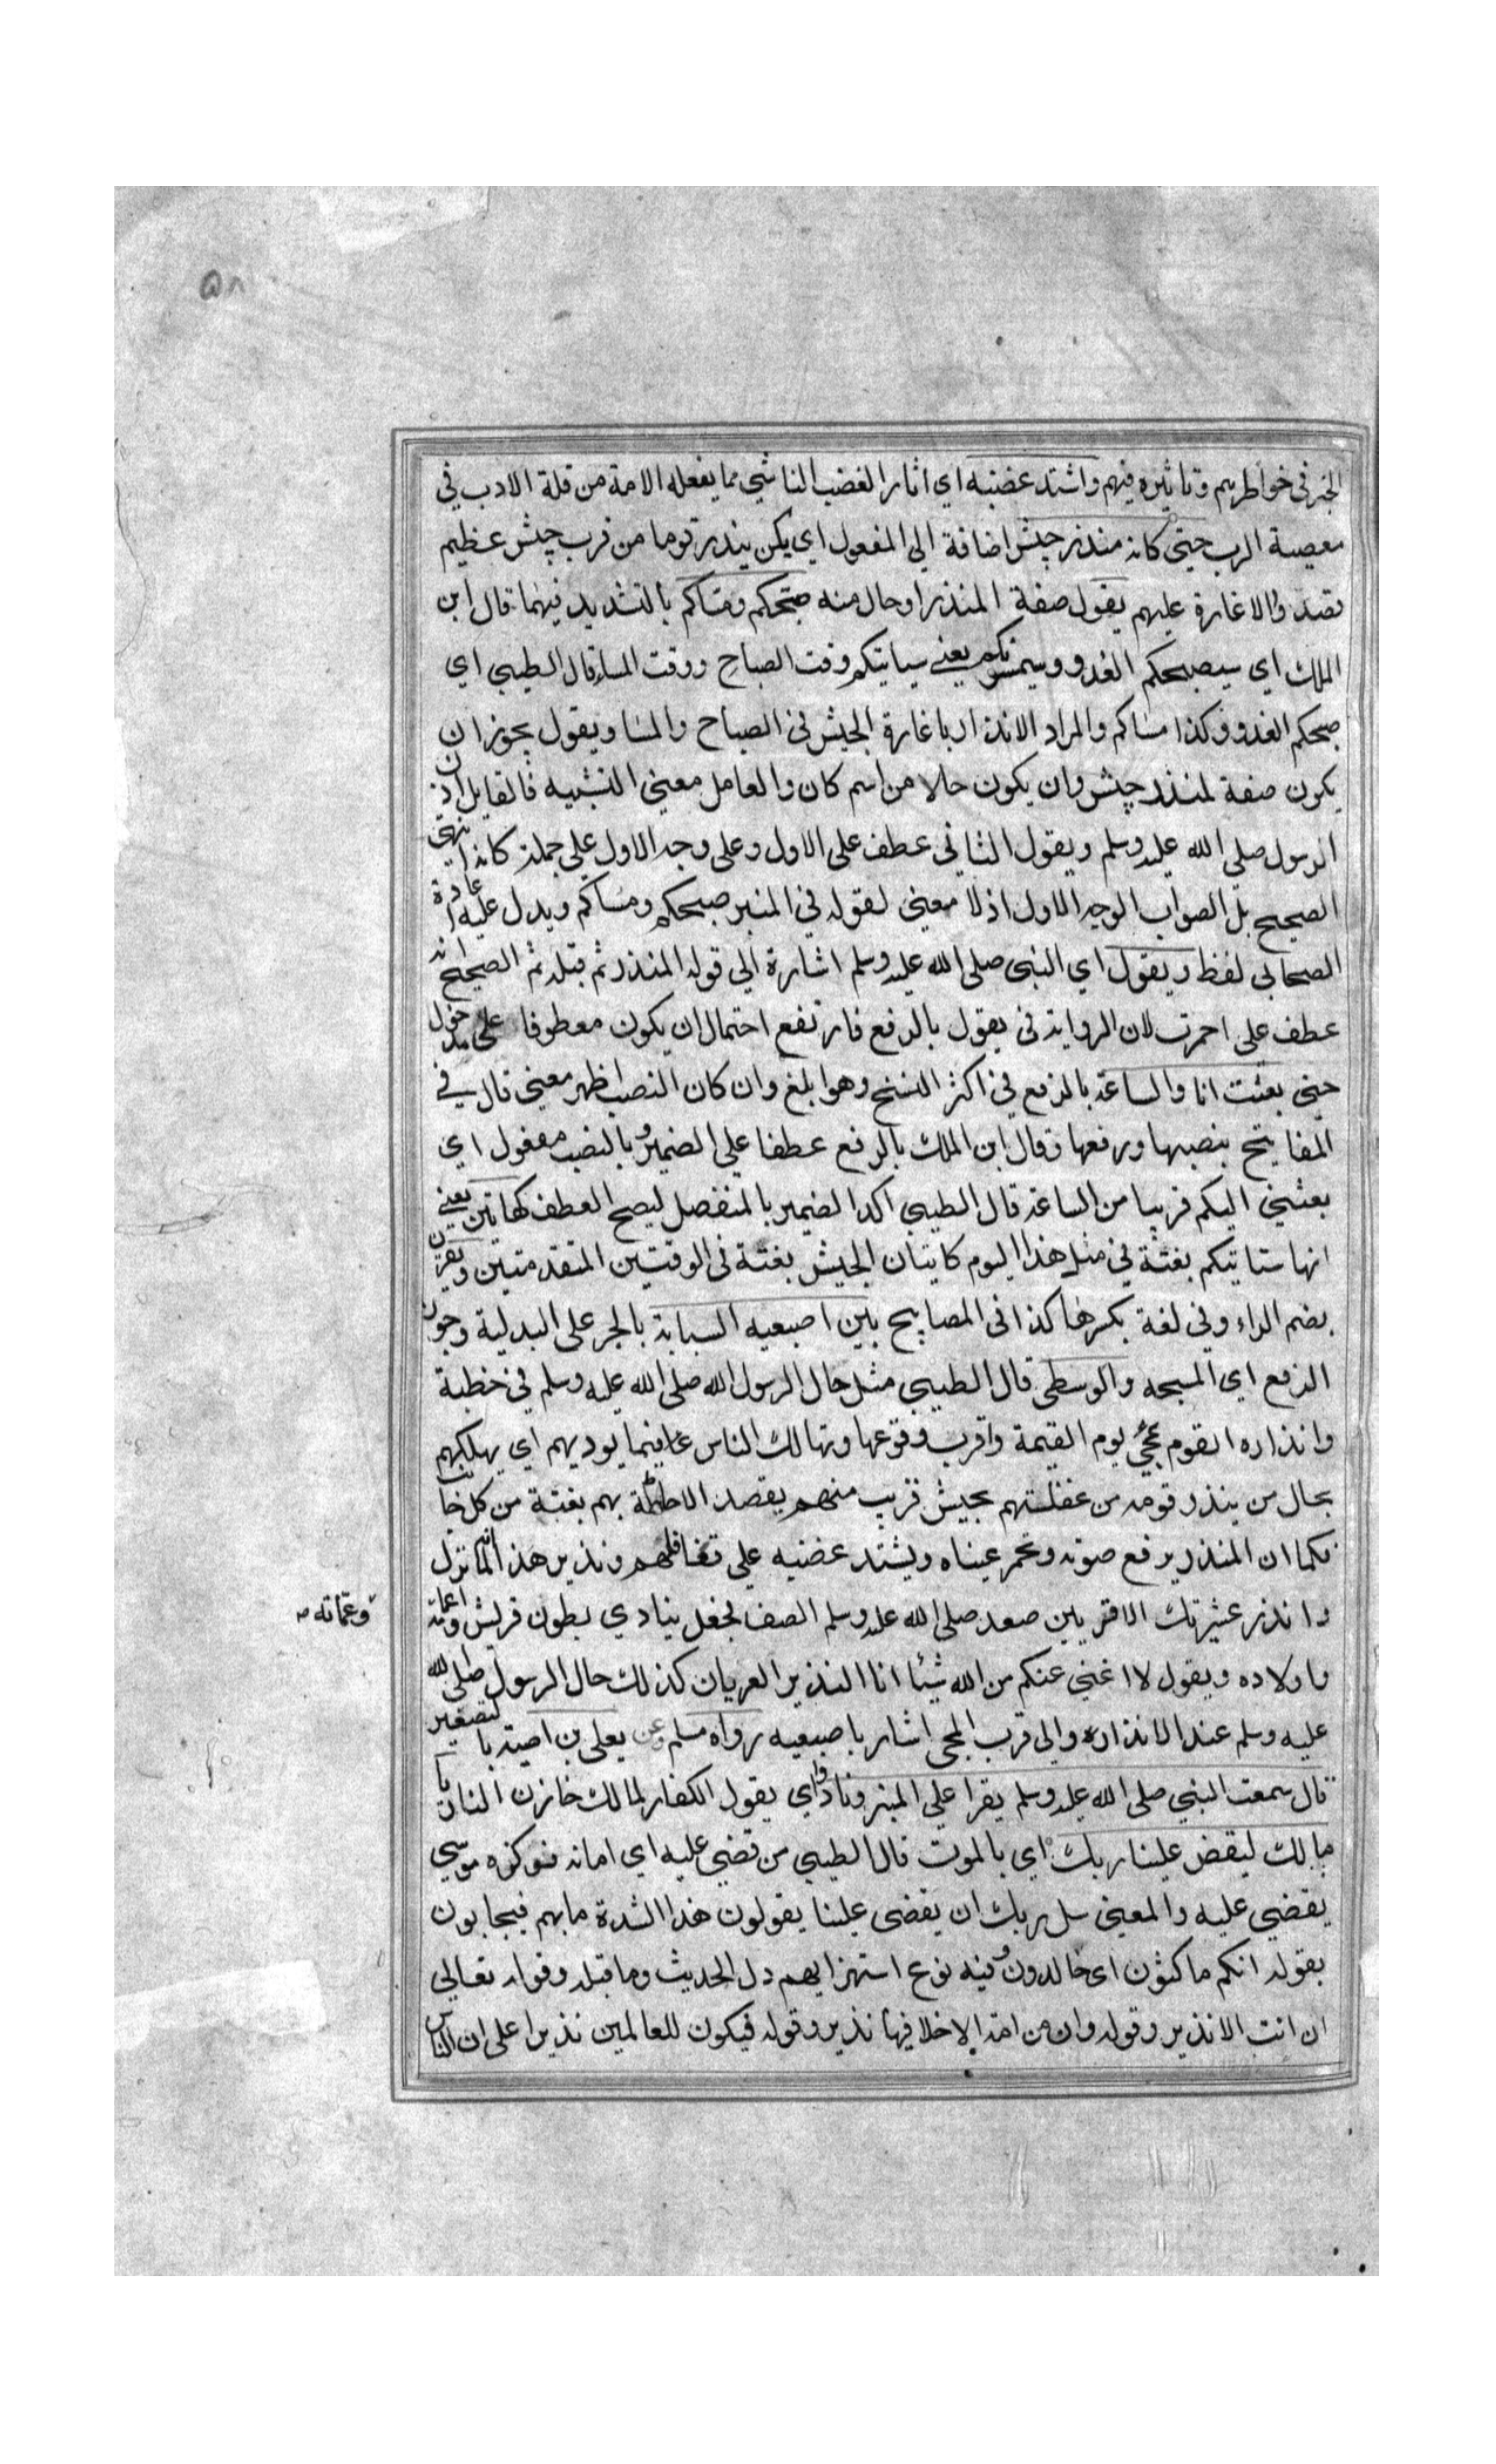 ٥٨
الخبر في خواطرهم وتاثيره فيهم واشتد غضبه اي اثار الغضب الناشي مما يفعله الامة من قلة الادب في
معصية الرب حتى كانه منذر جيش اضافة الى المفعول اي يكن ينذر قوما من قرب جيش عظيم
قصدوا الاغارة عليهم يقول صفة المنذر او حال منه صبحكم ومساكم بالتشديد فيهما قال ابن
الملك اي سيصبحكم العدو وسيمسونكم يعني سياتيكم وقت الصباح ووقت المساء قال الطيبي اي
صبحكم العدو وكذا مساكم والمراد الانذار باغارة الجيش في الصباح والمسا ويقول يجوز ان
يكون صفة لمنذر جيش وان يكون حالا من اسم كان والعامل معنى التشبيه فالقايل اذن
الرسول صلى الله عليه وسلم ويقول الثاني عطف على الاول وعلى وجه الاول على جملة كانه انتهى
الصحيح بل الصواب الوجه الاول اذ لا معنى لقوله في المنبر صبحكم ومساكم ويدل عليه اعادة
الصحابي لفظ ويقول اي النبي صلى الله عليه وسلم اشارة الى قوله المنذر ثم قبله ثم الصحيح انه
عطف على احمرت لان الرواية في يقول بالرفع فارتفع احتمال ان يكون معطوفا على مدخول
حتى بعثت انا والساعة بالرفع في اكثر النسخ وهو ابلغ وان كان النصب اظهر معنى قال في
المفاتيح بنصبها ورفعها وقال ابن الملك بالرفع عطفا على الضمير وبالنصب مفعول اي
بعثني اليكم قريبا من الساعة قال الطيبي اكد الضمير بالمنفصل ليصح العطف كهاتين يعني
انها ستاتيكم بغتة في مثل هذا اليوم كاتيان الجيش بغتة في الوقتين المتقدمتين ويقرن
بضم الراء وفي لغة بكسرها كذا في المصابيح بين اصبعيه السبابة بالجر على البدلية وجوز
الرفع اي المسبحه والوسطى قال الطيبي مثل حال الرسول الله صلى الله عليه وسلم في خطبة
وانذاره القوم بمجئ يوم القيمة وقرب وقوعها وتهالك الناس فيما يوديهم اي يهلكهم
بحال من ينذر قومه من غفلتهم بجيش قريب منهم يقصد الاحاطة بهم بغتة من كل جانب
فكما ان المنذر يرفع صوته وتحمر عيناه ويشتد غضبه على تغافلهم ونذير هذا انه لما نزل
وانذر عشيرتك الاقربين صعد صلى الله عليه وسلم الصف فجعل ينادي بطون قريش واعمامه
وعماته
واولاده ويقول لا اغني عنكم من الله شيئا انا النذير العريان كذلك حال الرسول صلى الله
عليه وسلم عند الانذاره والى قرب المجى اشار باصبعيه رواه مسلم وعن يعلى بن امية بالتصغير
قال سمعت النبي صلى الله عليه وسلم يقرا على المنبر ونادوا اي يقول الكفار لمالك خازن النار يا
مالك ليقض علينا ربك اي بالموت قال الطيبي من قضى عليه اي اماته فوكزه موسى
يقضي عليه والمعنى سل ربك ان يقضى علينا يقولون هذا الشدة ما بهم فيجابون
بقوله انكم ماكثون اي خالدون وفيه نوع استهزا بهم دل الحديث وما قبله وقوله تعالى
ان انت الا نذير وقوله وان من امة الا خلا فيها نذير وقوله فيكون للعالمين نذيرا على ان الناس